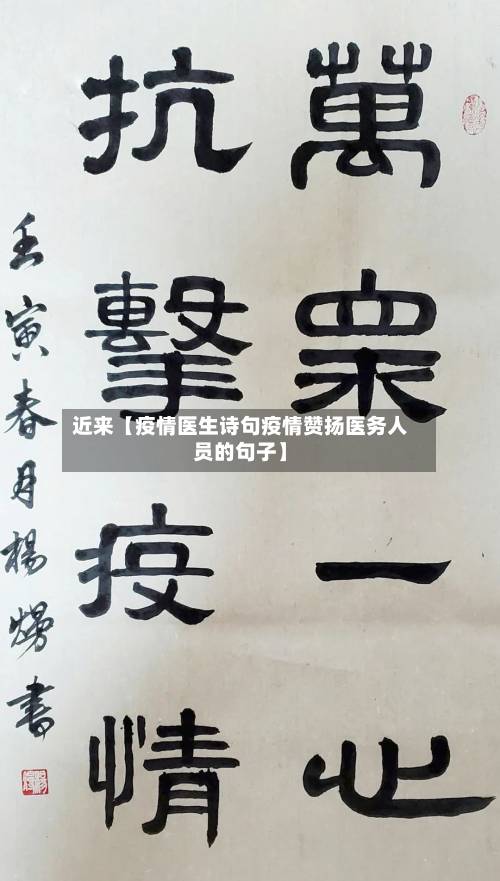 萬眾一心
抗擊疫情
壬寅春月楊嫚書
近来【疫情医生诗句疫情赞扬医务人
员的句子】